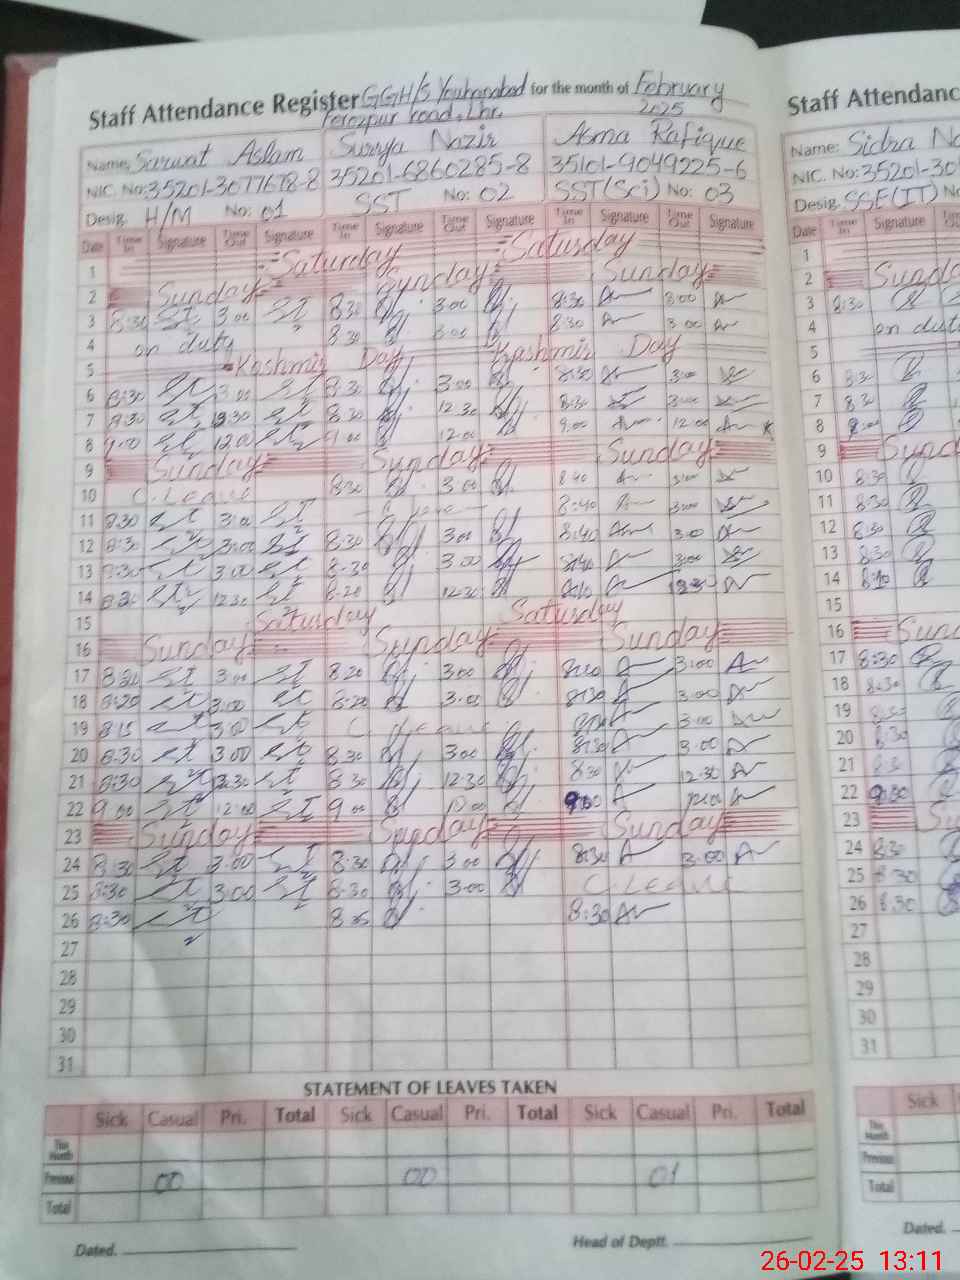 Staff Attendance Register GGH/S Youhanabad for the month of February
Ferozpur Road, Lhr. 2025
Name: Sarwat Aslam Surrya Nazir Asma Rafique
NIC. No: 35201-3077678-8 35201-6860285-8 35101-9049225-6
Desig. H/M No: 01 SST No: 02 SST (Sci) No: 03
Date Time In Signature Time Out Signature Time In Signature Time Out Signature Time In Signature Time Out Signature
1 Saturday Saturday
2 Sunday Sunday Sunday
3 8:30 3:00 8:30 3:00 8:30 3:00
4 on duty 8:30 3:00 8:30 3:00
5 Kashmir Day Kashmir Day
6 8:30 3:00 8:30 3:00 8:30 3:00
7 8:30 8:30 12:30 8:30 3:00
8 9:00 12:00 9:00 12:00 9:00 12:00
9 Sunday Sunday Sunday
10 C. Leave 8:30 3:00 8:40 3:00
11 8:30 3:00 8:40 3:00
12 8:30 3:00 8:30 3:00 8:40 3:00
13 8:30 3:00 8:30 3:00 8:40 3:00
14 12:30 8:20 12:30
15 Saturday Saturday
16 Sunday Sunday Sunday
17 8:20 3:00 8:20 3:00 3:00
18 8:20 3:00 8:20 3:00 8:30 3:00
19 8:15 3:00 C. Leave 3:00
20 8:30 3:00 8:30 3:00 8:30 3:00
21 8:30 12:30 8:30 12:30 8:30 12:30
22 9:00 12:00 9:00 12:00 9:00
23 Sunday Sunday Sunday
24 8:30 3:00 8:30 3:00 8:30 3:00
25 8:30 3:00 8:30 3:00 C. Leave
26 8:30 8:30
27
28
29
30
31
STATEMENT OF LEAVES TAKEN
Sick Casual Pri. Total Sick Casual Pri. Total Sick Casual Pri. Total
This Month
Previous 00 00 01
Total
Dated. Head of Deptt.
Staff Attendanc
Name: Sidra Na
NIC. No: 35201-30
Desig. SSE (IT) No
Date Time In Signature
1
2 Sunda
3 8:30
4 on dut
5
6 8:30
7 8:30
8
9 Sund
10 8:30
11 8:30
12 8:30
13 8:30
14
15
16 Sun
17 8:30
18 8:30
19 8:30
20 8:30
21 8:30
22
23 Su
24 8:30
25 8:30
26 8:30
27
28
29
30
31
Sick
This Month
Previous
Total
Dated.
26-02-25 13:11